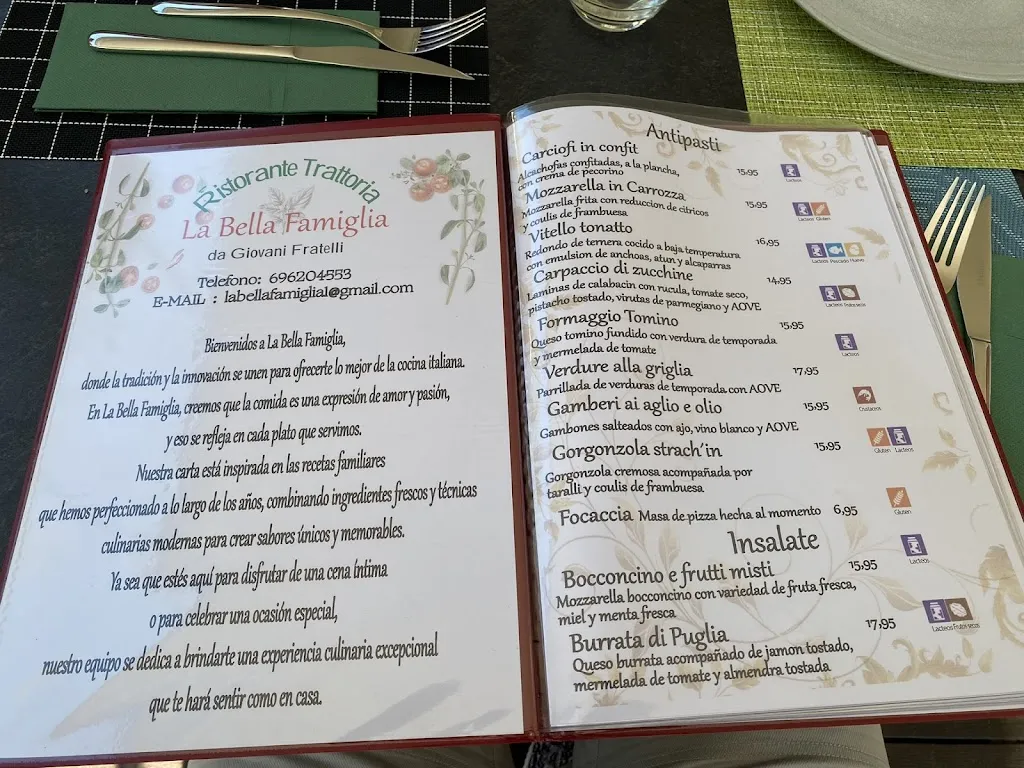 Ristorante Trattoria
La Bella Famiglia
da Giovani Fratelli
Telefono: 696204553
E-MAIL : labellafamiglia1@gmail.com
Bienvenidos a La Bella Famiglia,
donde la tradición y la innovación se unen para ofrecerte lo mejor de la cocina italiana.
En La Bella Famiglia, creemos que la comida es una expresión de amor y pasión,
y eso se refleja en cada plato que servimos.
Nuestra carta está inspirada en las recetas familiares
que hemos perfeccionado a lo largo de los años, combinando ingredientes frescos y técnicas
culinarias modernas para crear sabores únicos y memorables.
Ya sea que estés aquí para disfrutar de una cena íntima
o para celebrar una ocasión especial,
nuestro equipo se dedica a brindarte una experiencia culinaria excepcional
que te hará sentir como en casa.
Antipasti
Carciofi in confit
Alcachofas confitadas, a la plancha, 15,95
con crema de pecorino
Lacteos
Mozzarella in Carrozza
Mozzarella frita con reduccion de citricos 15,95
y coulis de frambuesa
Lacteos Gluten
Vitello tonatto
Redondo de ternera cocido a baja temperatura 16,95
con emulsion de anchoas, atun y alcaparras
Lacteos Pescado Huevo
Carpaccio di zucchine 14,95
Laminas de calabacin con rucula, tomate seco,
pistacho tostado, virutas de parmegiano y AOVE
Lacteos Frutos secos
Formaggio Tomino 15,95
Queso tomino fundido con verdura de temporada
y mermelada de tomate
Lacteos
Verdure alla griglia 17,95
Parrillada de verduras de temporada con AOVE
Gamberi ai aglio e olio 15,95
Crustaceos
Gambones salteados con ajo, vino blanco y AOVE
Gorgonzola strach'in 15,95
Gluten Lacteos
Gorgonzola cremosa acompañada por
taralli y coulis de frambuesa
Focaccia Masa de pizza hecha al momento 6,95
Gluten
Insalate
Bocconcino e frutti misti 15,95
Lacteos
Mozzarella bocconcino con variedad de fruta fresca,
miel y menta fresca
Burrata di Puglia 17,95
Lacteos Frutos secos
Queso burrata acompañado de jamon tostado,
mermelada de tomate y almendra tostada